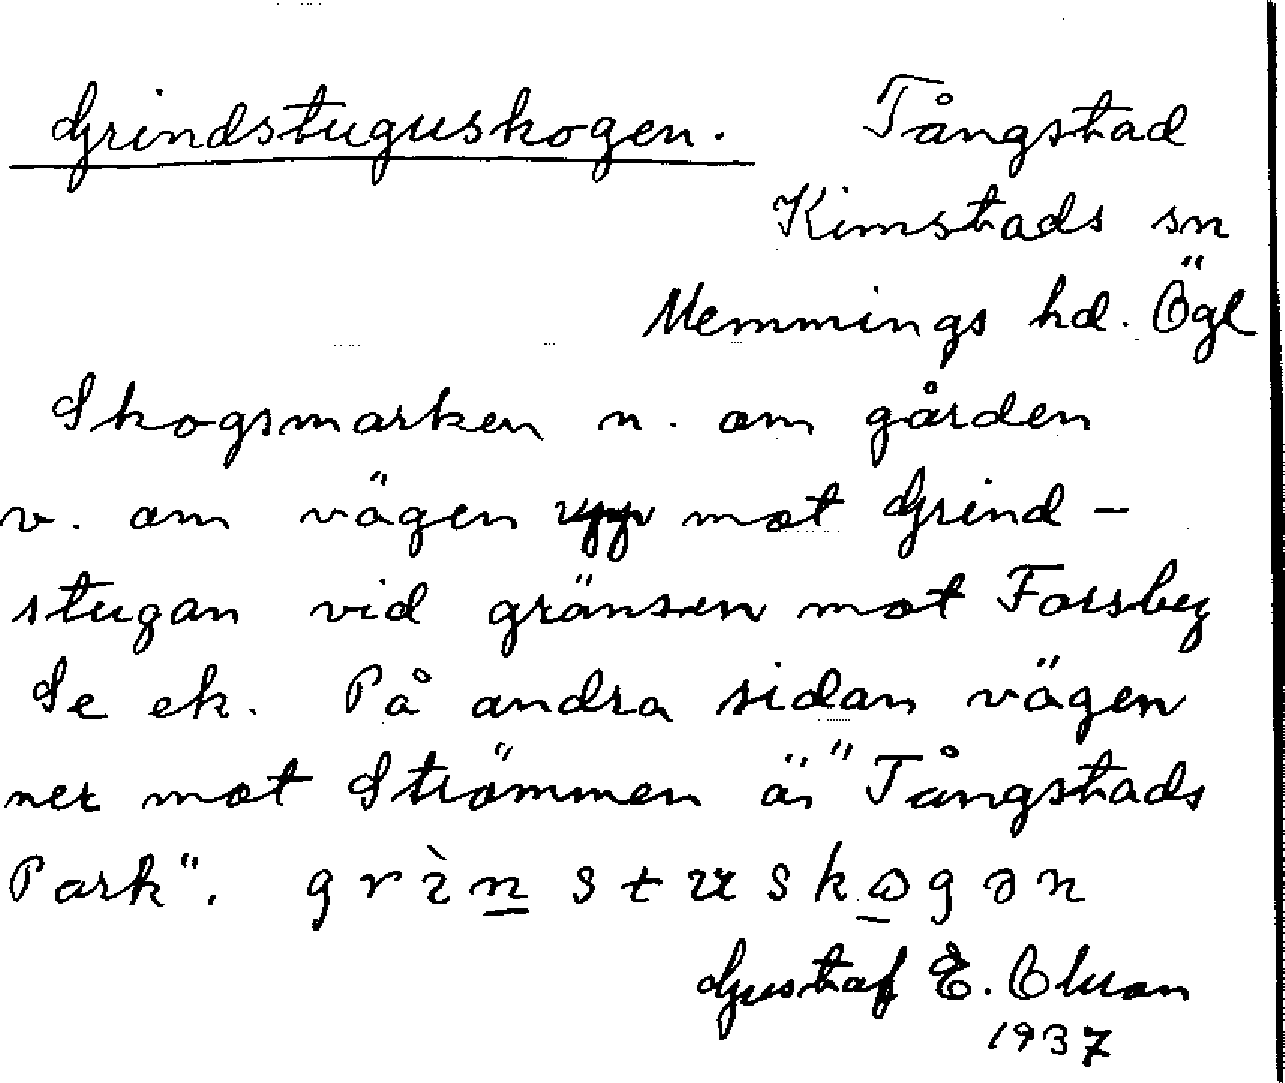 Grindstuguskogen. Tångstad
Kimstads sn
Memmings hd. Ögl
Skogsmarken n. om gården
v. om vägen mot Grind-
stugan vid gränsen mot Forsby
Se ek. På andra sidan vägen
ner mot Strömmen är "Tångstads
Park". grìnstuskogən
Gustaf E.
1937